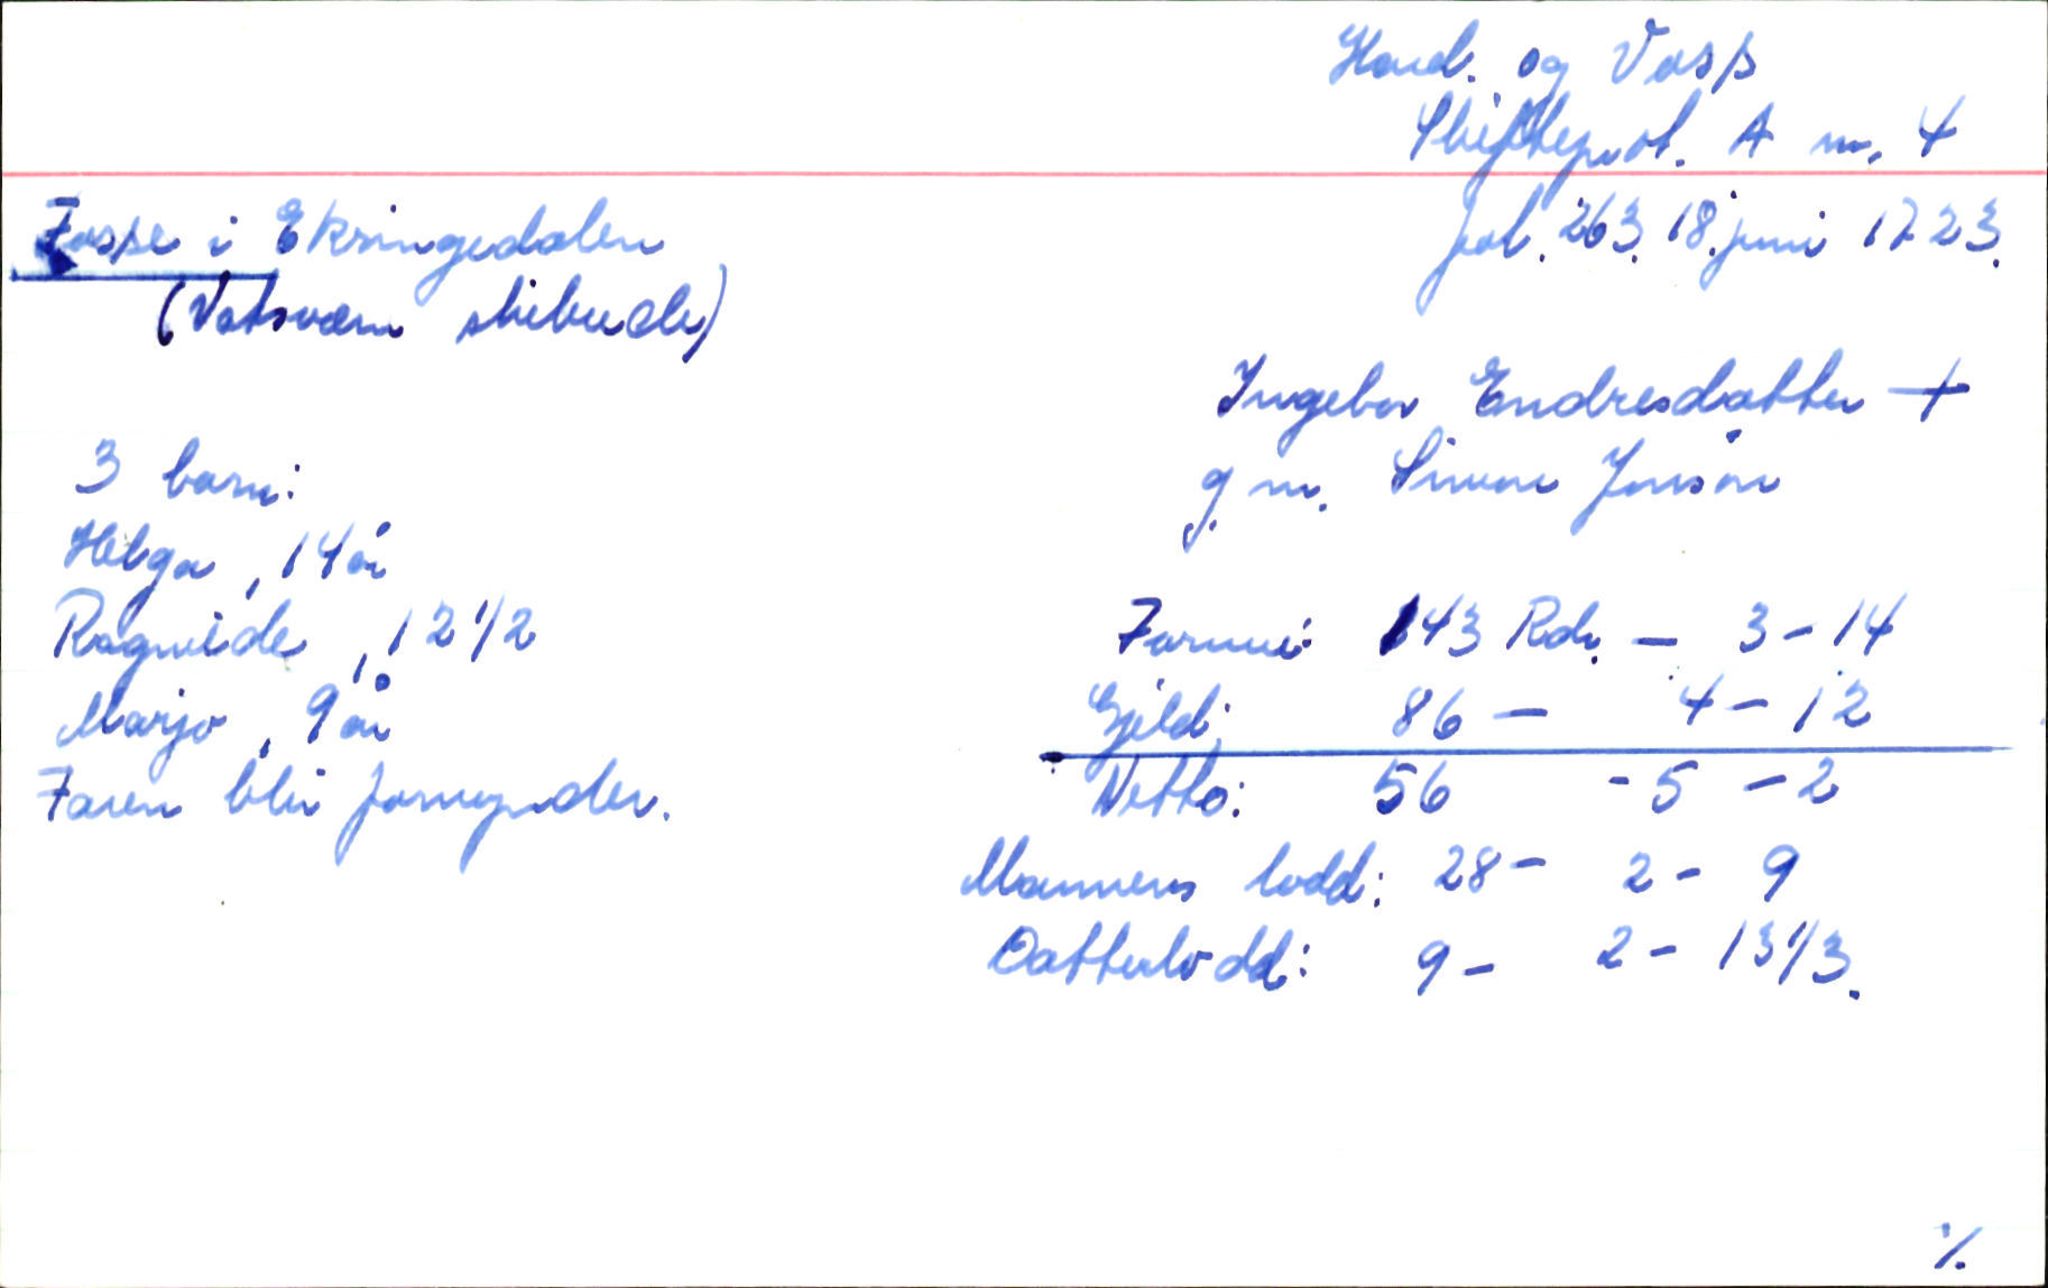 Hard. og Voss
Skifteprot. A nr. 4
fol. 263. 18. juni 1723.
Fosse i Eksingedalen
(Vatsværn skibrede)
Ingebor Endresdatter +
g. m. Simon Jonsøn
3 barn:
Helga, 14 år
Ragnilde, 12 1/2
Marjo, 9 år
Faren blir formynder.
Formue: 143 Rdr. — 3 - 14
Gjeld: 86 — 4 - 12
Netto: 56 - 5 - 2
Mannens lodd: 28 - 2 - 9
Datterlodd: 9 - 2 - 13 1/3.
·/.